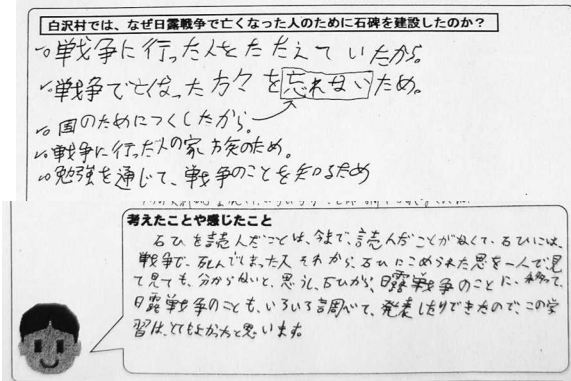 白沢村では、なぜ日露戦争で亡くなった人のために石碑を建設したのか？
戦争に行った人をたたえていたから。
戦争で亡くなった方々を忘れないため。
国のためにつくしたから。
戦争に行った人の家族のため。
勉強を通じて、戦争のことを知るため
考えたことや感じたこと
石ひを読んだことは、今まで、読んだことがなくて、石ひには、
戦争で、死んでしまった人 それから、石ひにこめられた思を一人で見
て見ても、分からないと、思うし、石ひから、日露戦争のことに、
日露戦争のことも、いろいろ調べて、発表したりできたので、この学
習は、とてもよかったと思います。